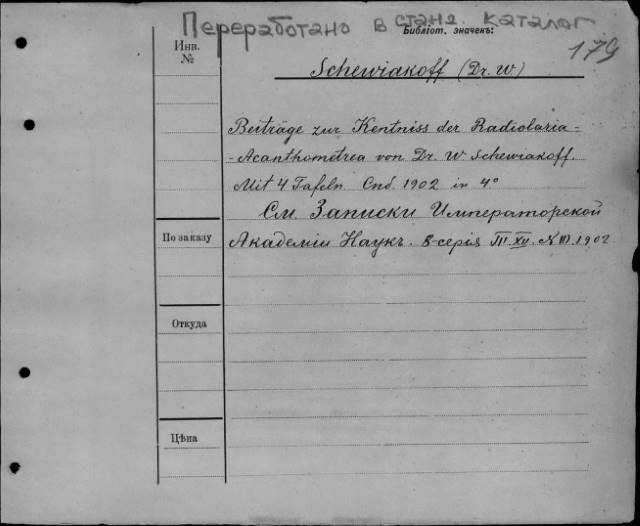 Переработано в станд. каталог
Инв.
№
Библіот. значекъ:
179
Schewiakoff (Dr. W)
Beiträge zur Kentniss der Radiolaria-
-Acanthometrea von Dr. W Schewiakoff.
Mit 4 Tafeln Спб. 1902 in 4°
См Записки Императорской
Академіи Наукъ. 8-серія Т. XII. № 10. 1902
По заказу
Откуда
Цѣна